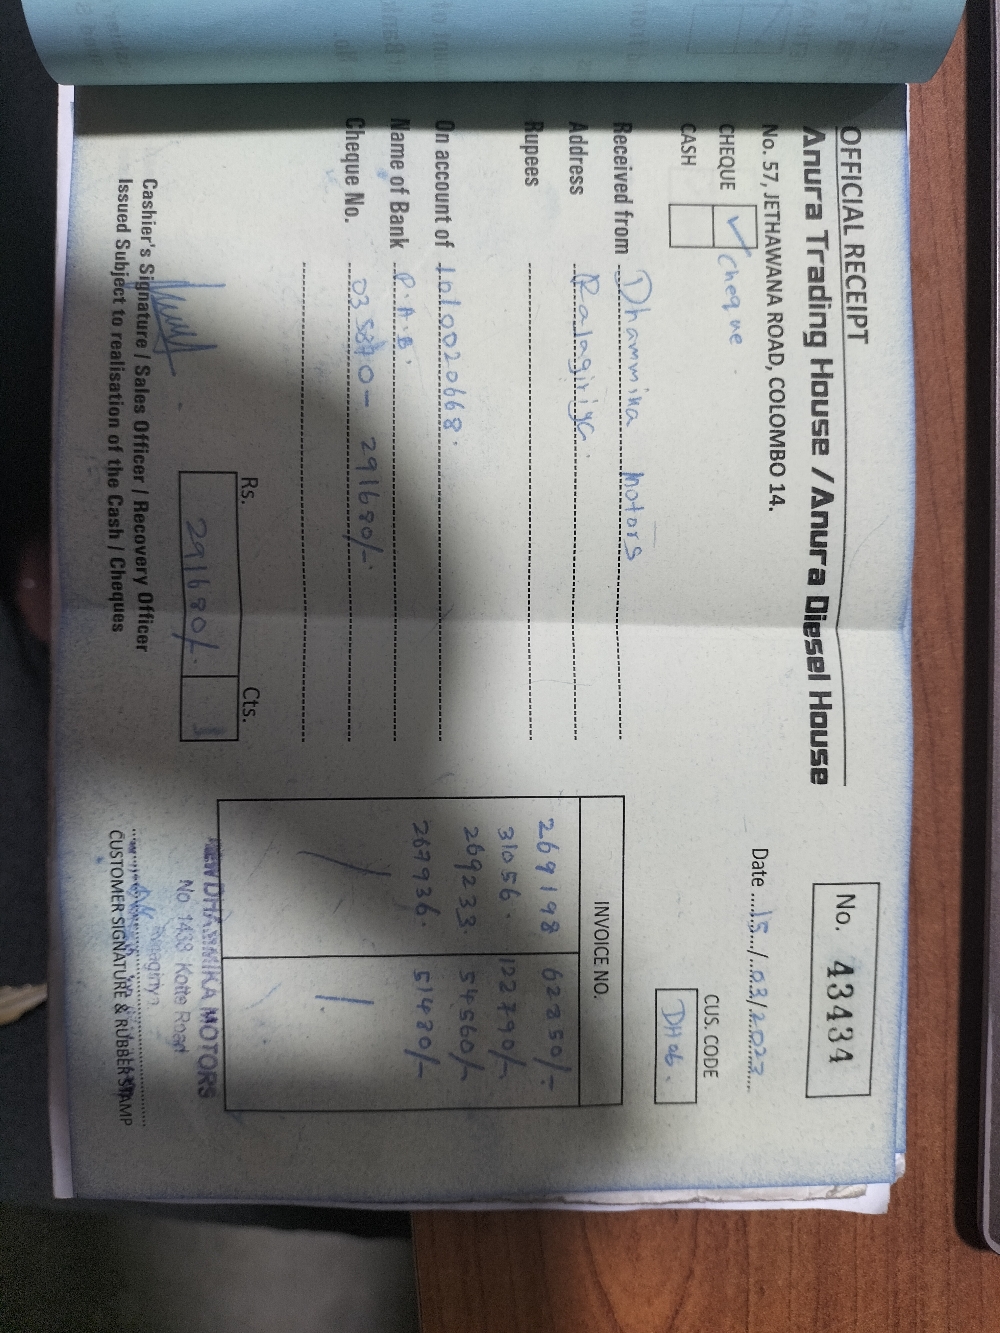 OFFICIAL RECEIPT
Anura Trading House / Anura Diesel House
No. 57, JETHAWANA ROAD, COLOMBO 14.
No. 43434
Date 15/03/2023
CHEQUE ✓ cheque
CASH
CUS. CODE
DH06.
Received from Dhammika Motors
Address Rajagiriya.
Rupees
On account of 1010020668.
Name of Bank P.A.B.
Cheque No. 035870 - 291680/-
INVOICE NO.
269198 62850/-
31056. 122790/-
269233 54560/-
267936. 51480/-
Rs. Cts.
291680/-
Cashier's Signature / Sales Officer / Recovery Officer
Issued Subject to realisation of the Cash / Cheques
NEW DHAMMIKA MOTORS
No. 1438 Kotte Road
CUSTOMER SIGNATURE & RUBBER STAMP